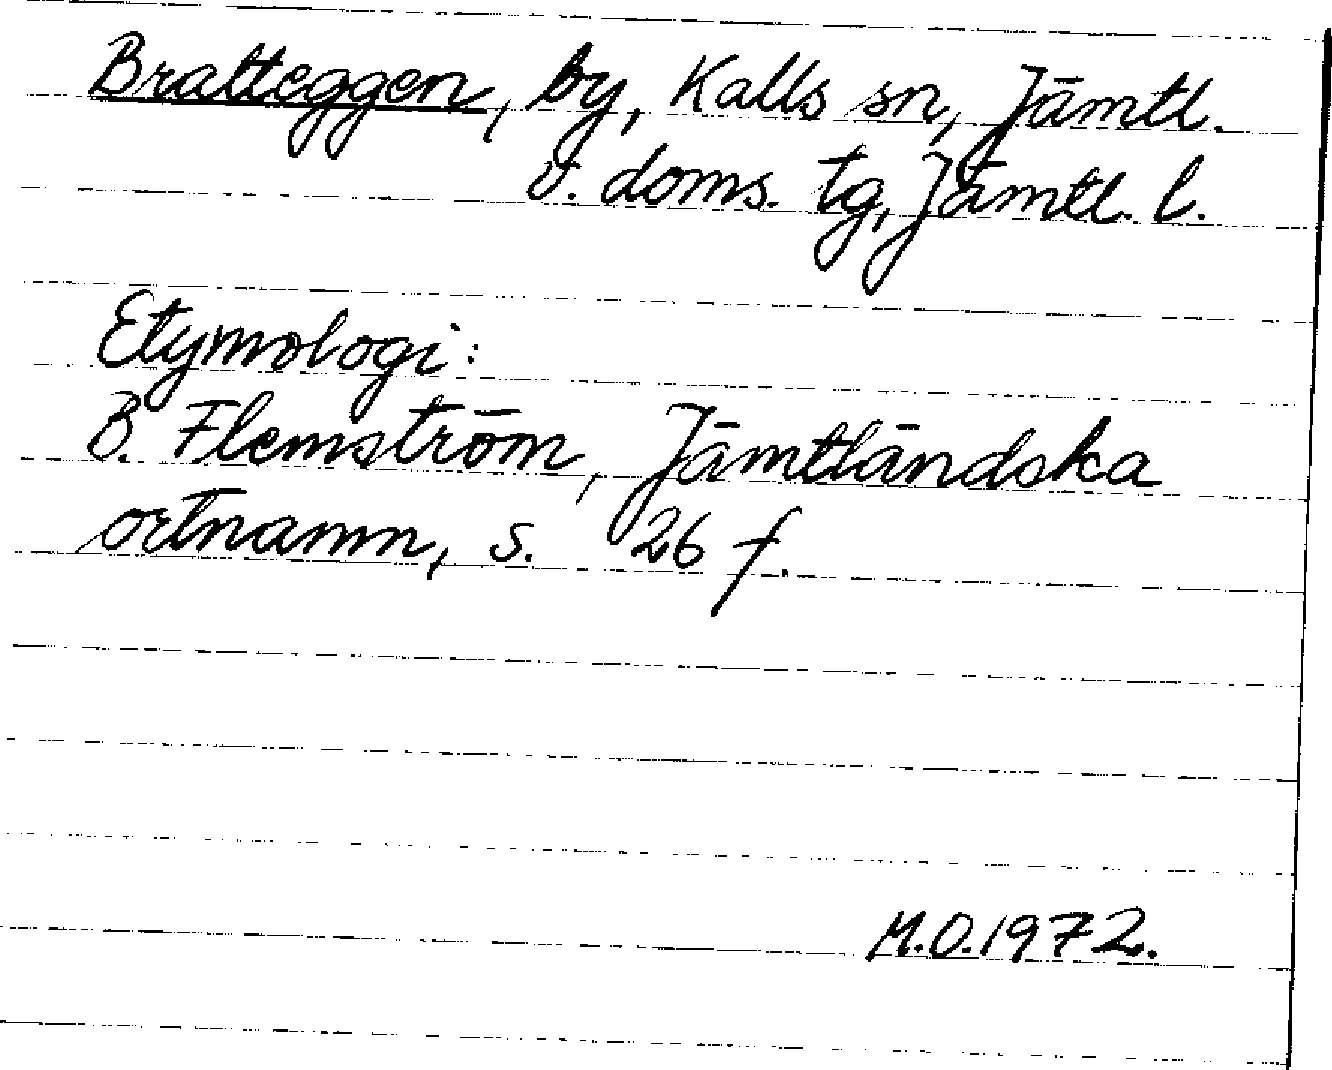 Bratteggen, by, Kalls sn, Jämtl.
v. doms. tg, Jämtl. l.
Etymologi:
B. Flemström, Jämtländska
ortnamn, s. 26 f.
M.O.1972.